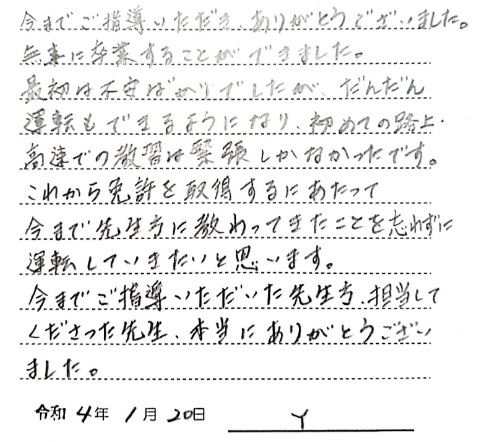 今までご指導いただき、ありがとうございました。
無事に卒業することができました。
最初は不安ばかりでしたが、だんだん
運転もできるようになり、初めての路上・
高速での教習は緊張しかなかったです。
これから免許を取得するにあたって
今まで先生方に教わってきたことを忘れずに
運転していきたいと思います。
今までご指導いただいた先生方、担当して
くださった先生、本当にありがとうござい
ました。
令和 4年 1月 20日 Y